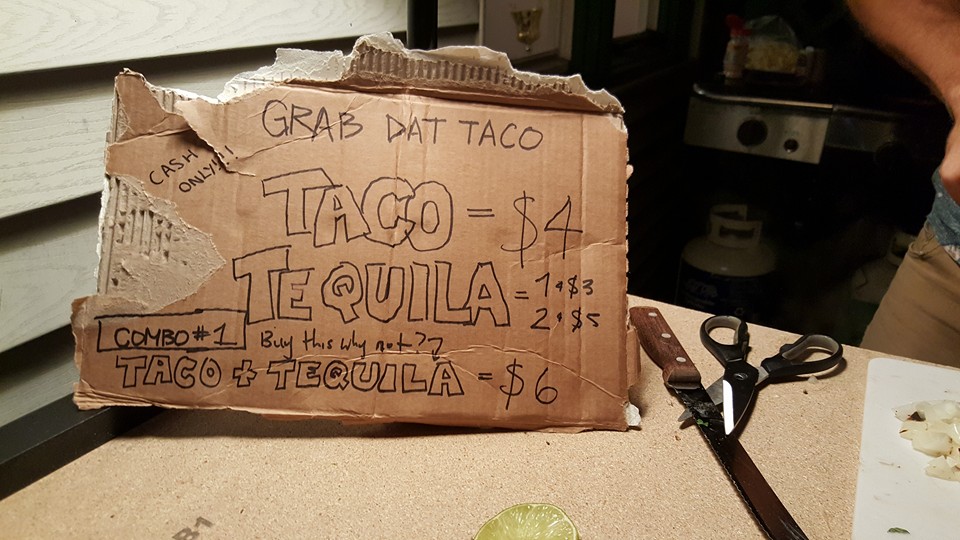 GRAB DAT TACO
CASH
ONLY!!!
TACO = $4
TEQUILA = 1 • $3
2 • $5
COMBO #1 Buy this why not?
TACO + TEQUILA = $6
B-1